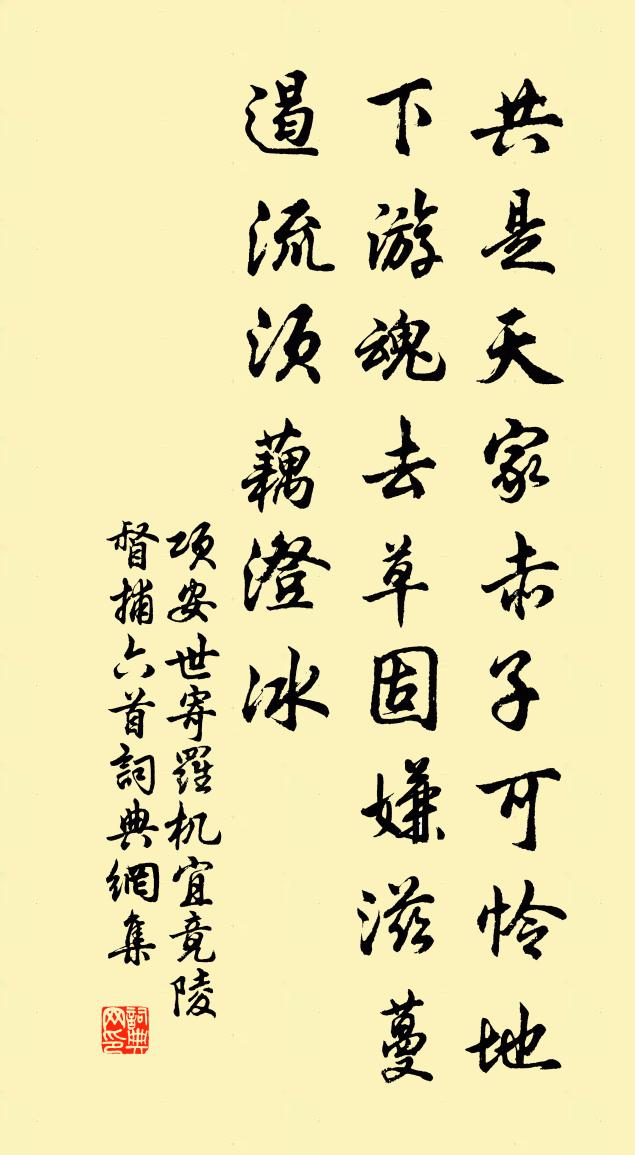 共是天家赤子可怜地
下游魂去草固嫌滋蔓
遏流须藕澄冰
项安世寄羅机宜竟陵
督捕六首詞典網集
詞典网印